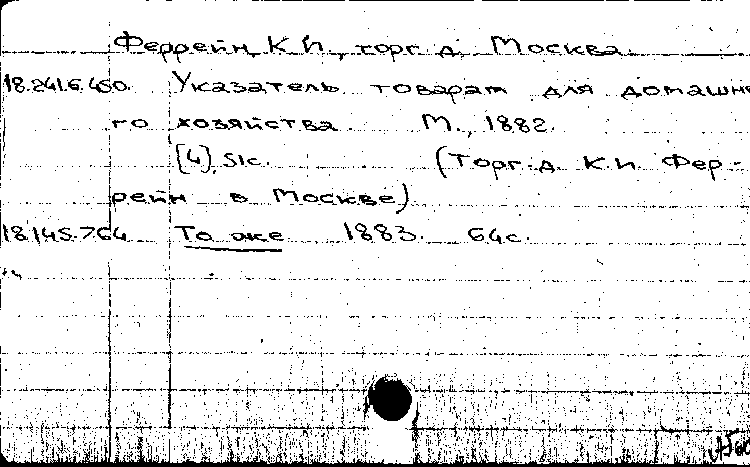 Феррейн, К.И., торг. д. Москва.
18.241.6.450. Указатель товарам для домашне
го хозяйства. М., 1882.
[4], 51с. (Торг. д. К.И. Фер-
рейн в Москве)
18.145.7.64 То же 1883. 64с.